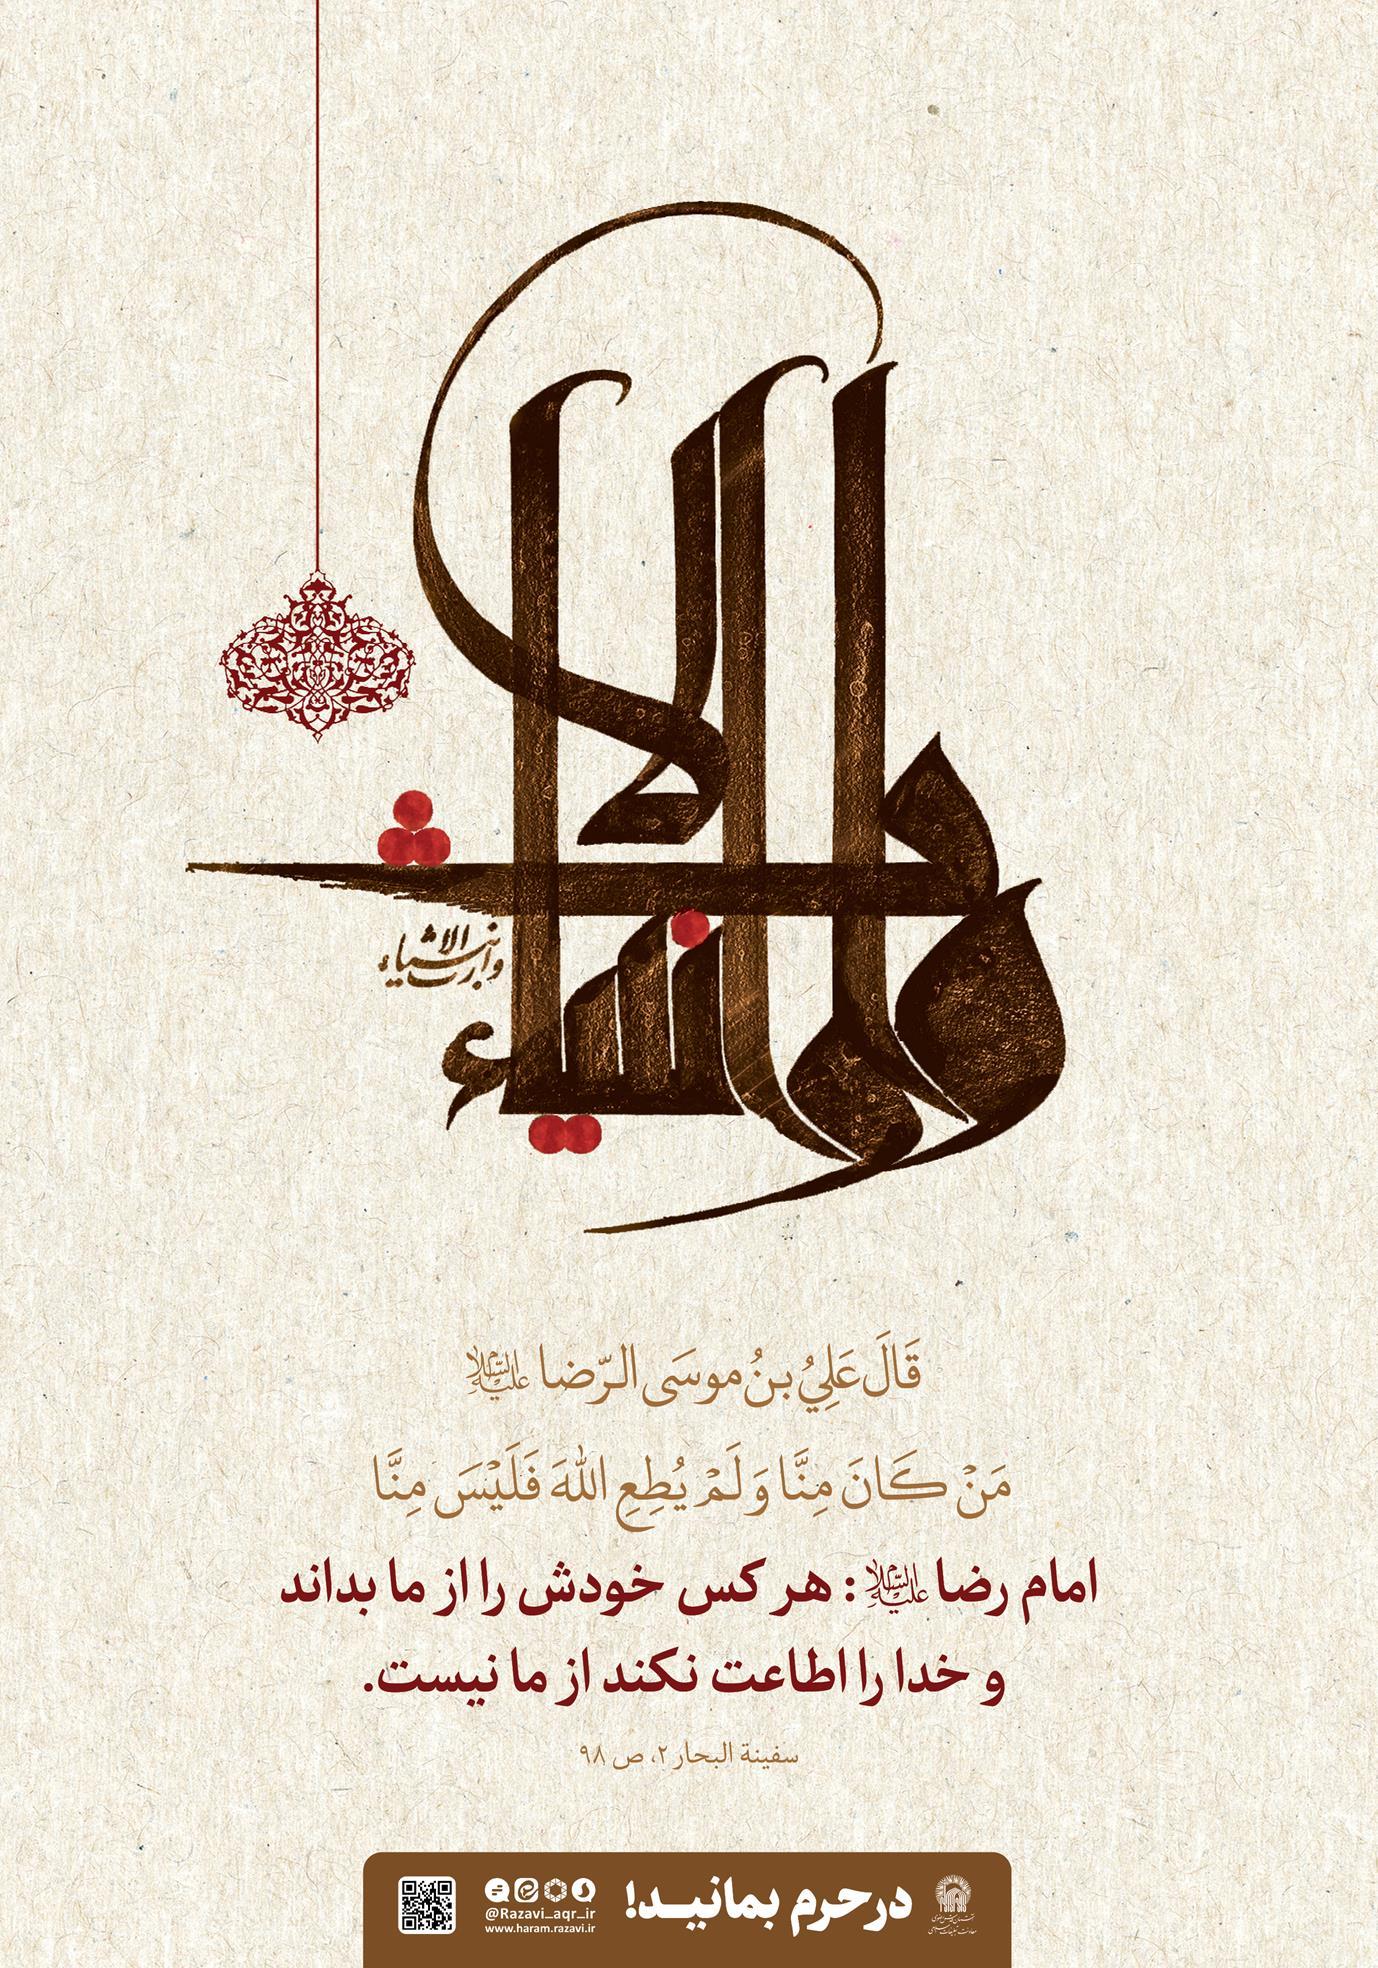 وارث الانبیاء
وارث الانبیاء
قَالَ عَلِيُ بنُ موسَى الرّضا علیه السلام
مَنْ كَانَ مِنَّا وَلَمْ يُطِعِ اللهَ فَلَيْسَ مِنَّا
امام رضا علیه السلام : هر کس خودش را از ما بداند
و خدا را اطاعت نکند از ما نیست.
سفینة البحار ۲، ص ۹۸
درحرم بمانید!
@Razavi_aqr_ir
www.haram.razavi.ir